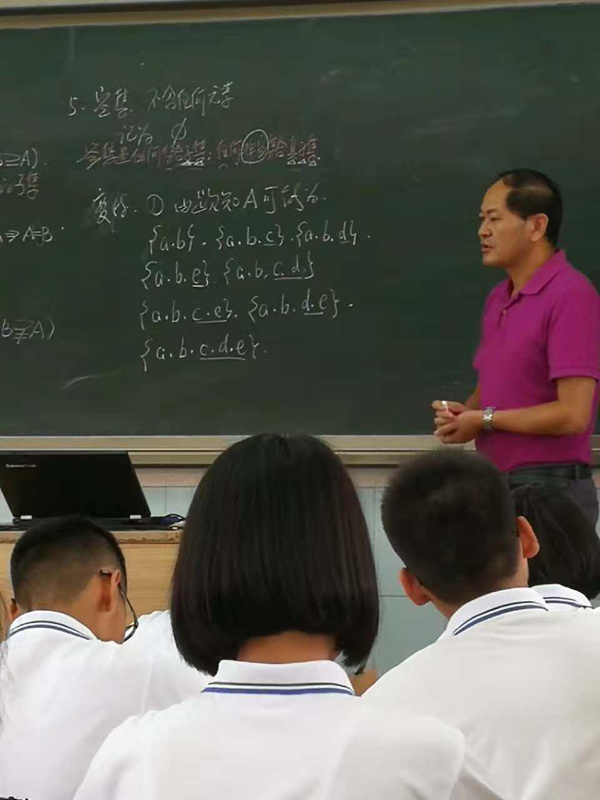 5. 空集 不含任何元素
记为 ∅
空集是任何集合子集, 任何非空集合真子集.
⊇A).
子集
A⇒A=B.
① 由题知 A 可能为.
{a.b}. {a.b.c}. {a.b.d}.
{a.b.e}. {a.b.c.d.}
{a.b.c.e}. {a.b.d.e}.
B⫌A)
{a.b.c.d.e}.